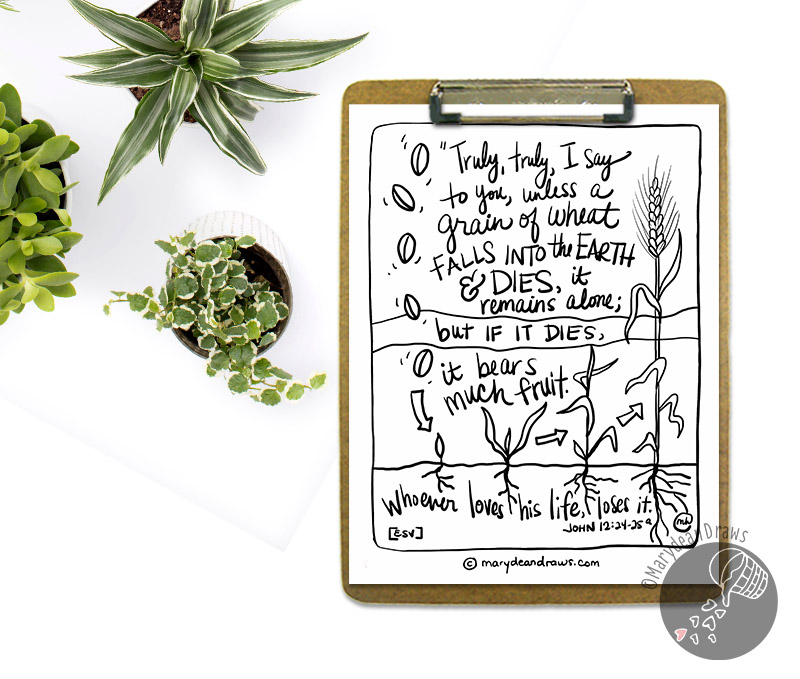 "Truly, truly, I say
to you, unless a
grain of wheat
FALLS INTO the EARTH
& DIES, it
remains alone;
but IF IT DIES,
it bears
much fruit.
Whoever loves his life, loses it.
JOHN 12:24-25a
[ESV]
© marydeandraws.com
©MarydeanDraws